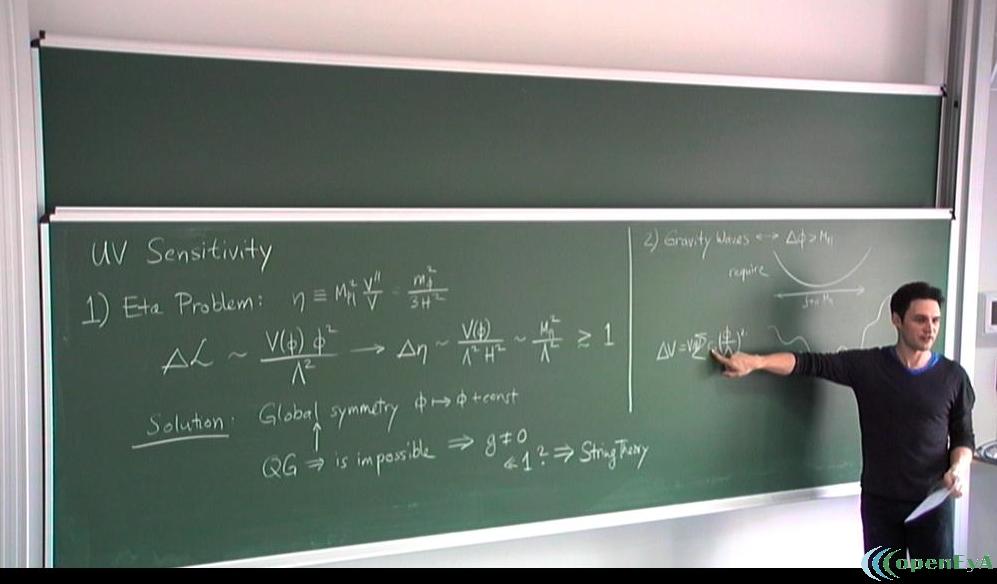 UV Sensitivity
1) Eta Problem: η ≡ M_Pl² V''/V = m_ϕ²/3H²
ΔL ~ V(ϕ) ϕ²/Λ² → Δη ~ V(ϕ)/Λ²H² ~ M_Pl²/Λ² ≳ 1
Solution: Global symmetry ϕ ↦ ϕ + const
QG ⇒ is impossible ⇒ g ≠ 0
≪ 1 ? ⇒ String Theory
2) Gravity Waves ↔ Δϕ > M_Pl
require
ΔV =
openEyA